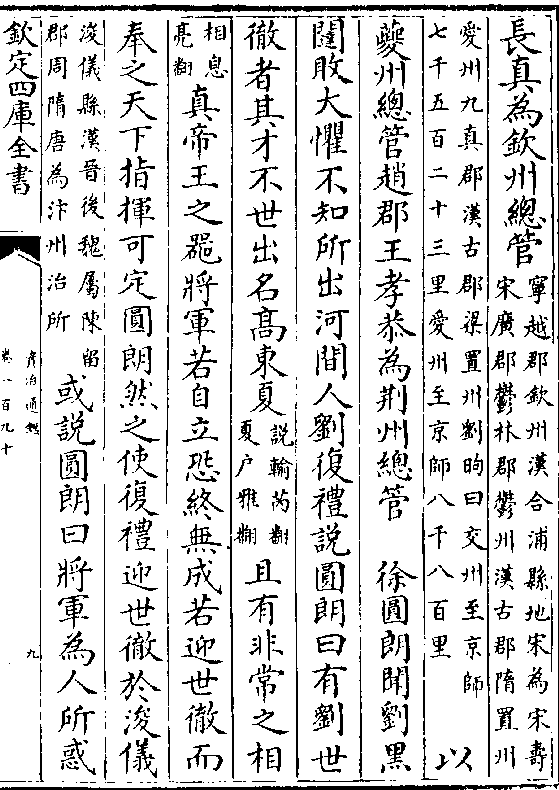 長真為欽州總管寧越郡欽州漢合浦縣地宋為宋壽
宋廣郡鬱林郡鬱州漢古郡隋置州
愛州九真郡漢古郡梁置州劉昫曰交州至京師
七千五百二十三里愛州至京師八千八百里以
夔州總管趙郡王孝恭為荆州總管　徐圓朗聞劉黑
闥敗大懼不知所出河間人劉復禮說圓朗曰有劉世
徹者其才不世出名髙東夏說輸芮翻
夏户雅翻且有非常之相
相息
亮翻真帝王之噐將軍若自立恐終無成若迎世徹而
奉之天下指揮可定圓朗然之使復禮迎世徹於浚儀
浚儀縣漢晉後魏屬陳留
郡周隋唐為汴州治所或說圓朗曰將軍為人所惑
欽定四庫全書
資治通鑑
卷一百九十
九